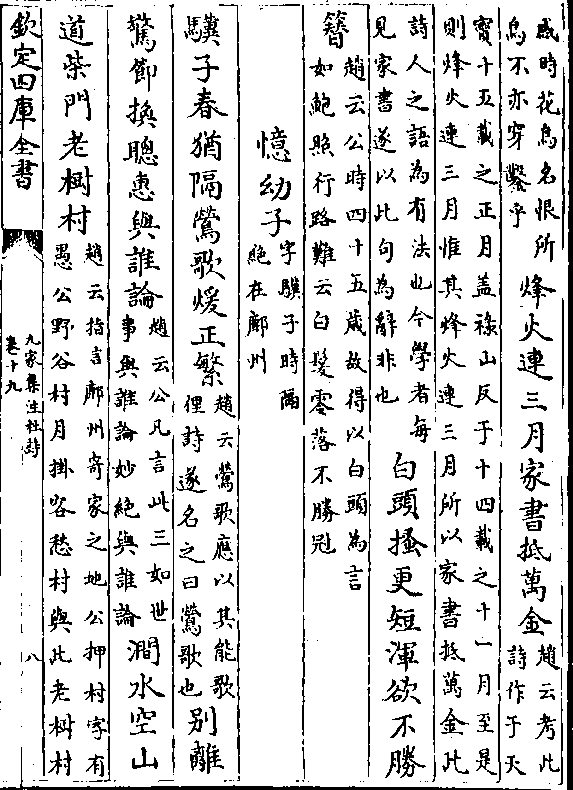 感時花鳥名恨所
鳥不亦穿鑿乎
烽火連三月家書抵萬金
趙云考此
詩作于天
寳十五載之正月盖祿山反于十四載之十一月至是
則烽火連三月惟其烽火連三月所以家書抵萬金此
詩人之語為有法也今學者每
見家書遂以此句為辭非也
白頭搔更短渾欲不勝
簪
趙云公時四十五歲故得以白頭為言
如鮑照行路難云白髮零落不勝冠
憶幼子
字驥子時隔
絶在鄜州
驥子春猶隔鶯歌煖正繁
趙云鶯歌應以其能歌
俚詩遂名之曰鶯歌也
别離
驚節換聰惠與誰論
趙云公凡言此三如世
事與誰論妙絶與誰論
澗水空山
道柴門老樹村
趙云指言鄜州寄家之地公押村字有
愚公野谷村月掛客愁村與此老樹村
欽定四庫全書
九家集注杜詩
卷十九
八